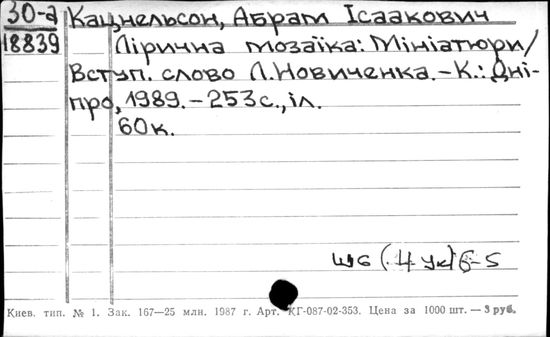 30-а Кацнельсон, Абрам Ісаакович
18839 Лірична мозаїка: Мініатюри/
Вступ. слово Л.Новиченка.–К.: Дні-
про, 1989.–253с., іл.
60к.
Ш6 (.4 Ук) 6-5
Киев. тип. № 1. Зак. 167—25 млн. 1987 г. Арт. КГ-087-02-353. Цена за 1000 шт. — 3 руб.